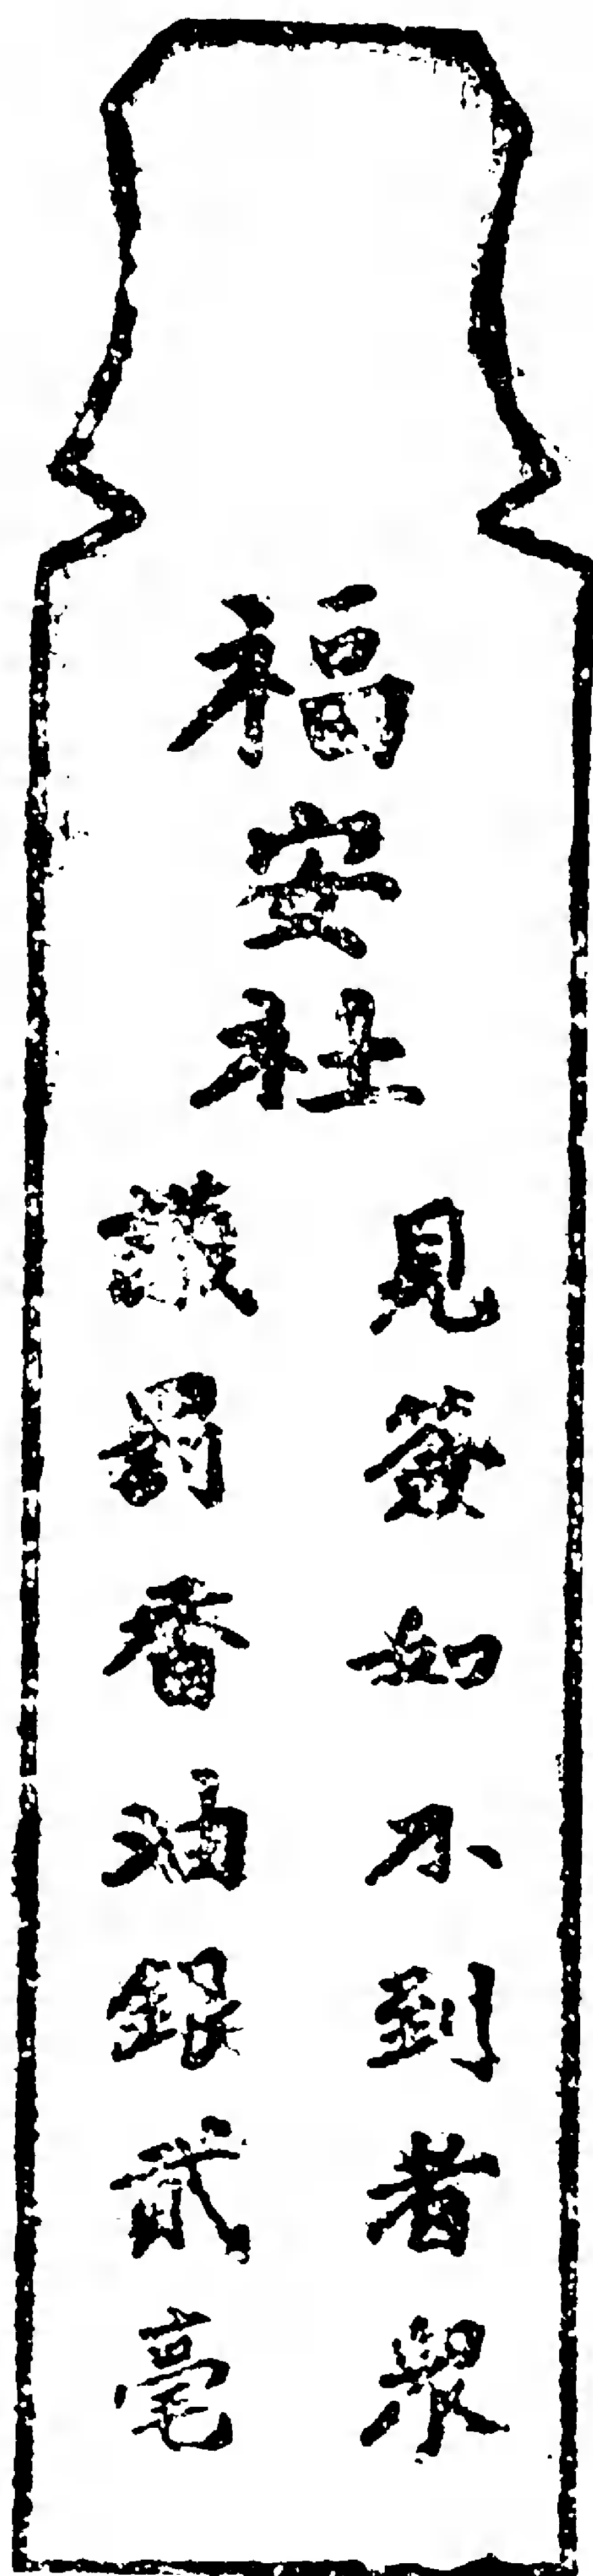 福安社
見簽如不到者眾
議罰香油銀貳毫